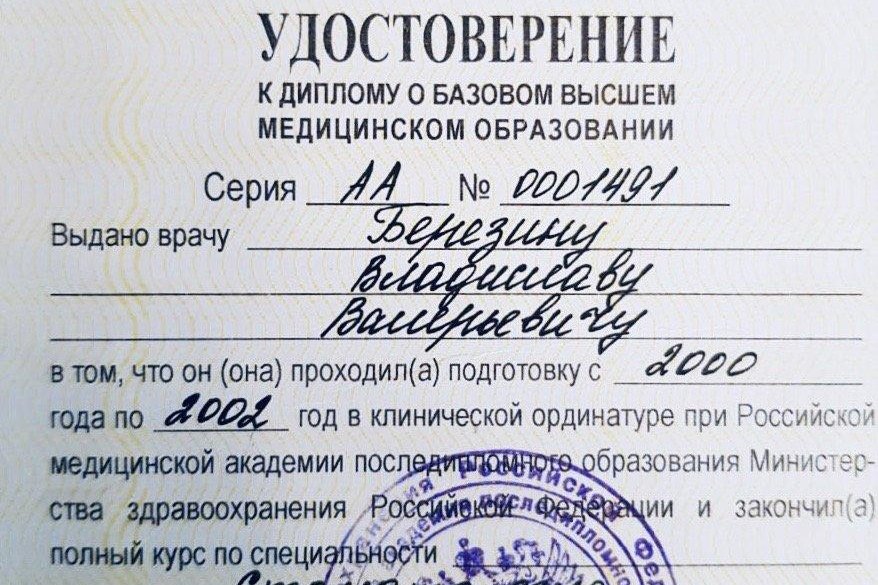 УДОСТОВЕРЕНИЕ
К ДИПЛОМУ О БАЗОВОМ ВЫСШЕМ
МЕДИЦИНСКОМ ОБРАЗОВАНИИ
Серия АА № 0001491
Выдано врачу Березину
Владиславу
Валерьевичу
в том, что он (она) проходил(а) подготовку с 2000
года по 2002 год в клинической ординатуре при Российской
медицинской академии последипломного образования Министер-
ства здравоохранения Российской Федерации и закончил(а)
полный курс по специальности
Российской
последипломного